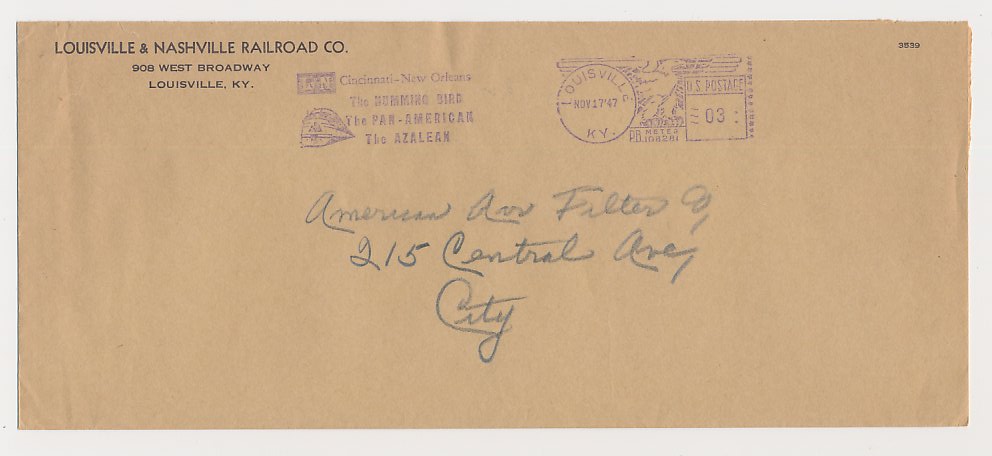 LOUISVILLE & NASHVILLE RAILROAD CO.
908 WEST BROADWAY
LOUISVILLE, KY.
3539
L&N
Cincinnati-New Orleans
The HUMMING BIRD
The PAN-AMERICAN
The AZALEAN
LOUISVILLE
NOV 17 '47
KY.
U.S. POSTAGE
03
P.B. METER
108281
American Air Filter Co,
215 Central Ave,
City